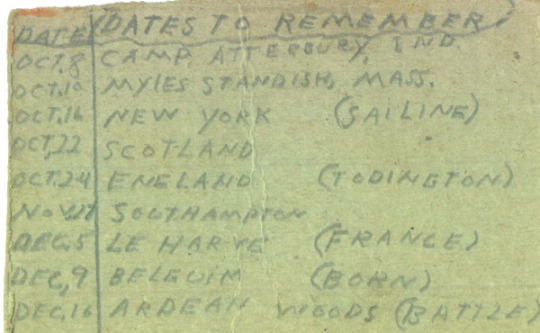 DATE DATES TO REMEMBER
OCT.8 CAMP ATTERBURY, IND.
OCT.10 MYLES STANDISH, MASS.
OCT.16 NEW YORK (SAILINE)
OCT.22 SCOTLAND
OCT.24 ENGLAND (TODINGTON)
NOV.27 SOUTHAMPTON
DEC.5 LE HARVE (FRANCE)
DEC,9 BELGUIM (BORN)
DEC,16 ARDEAN WOODS (BATTLE)